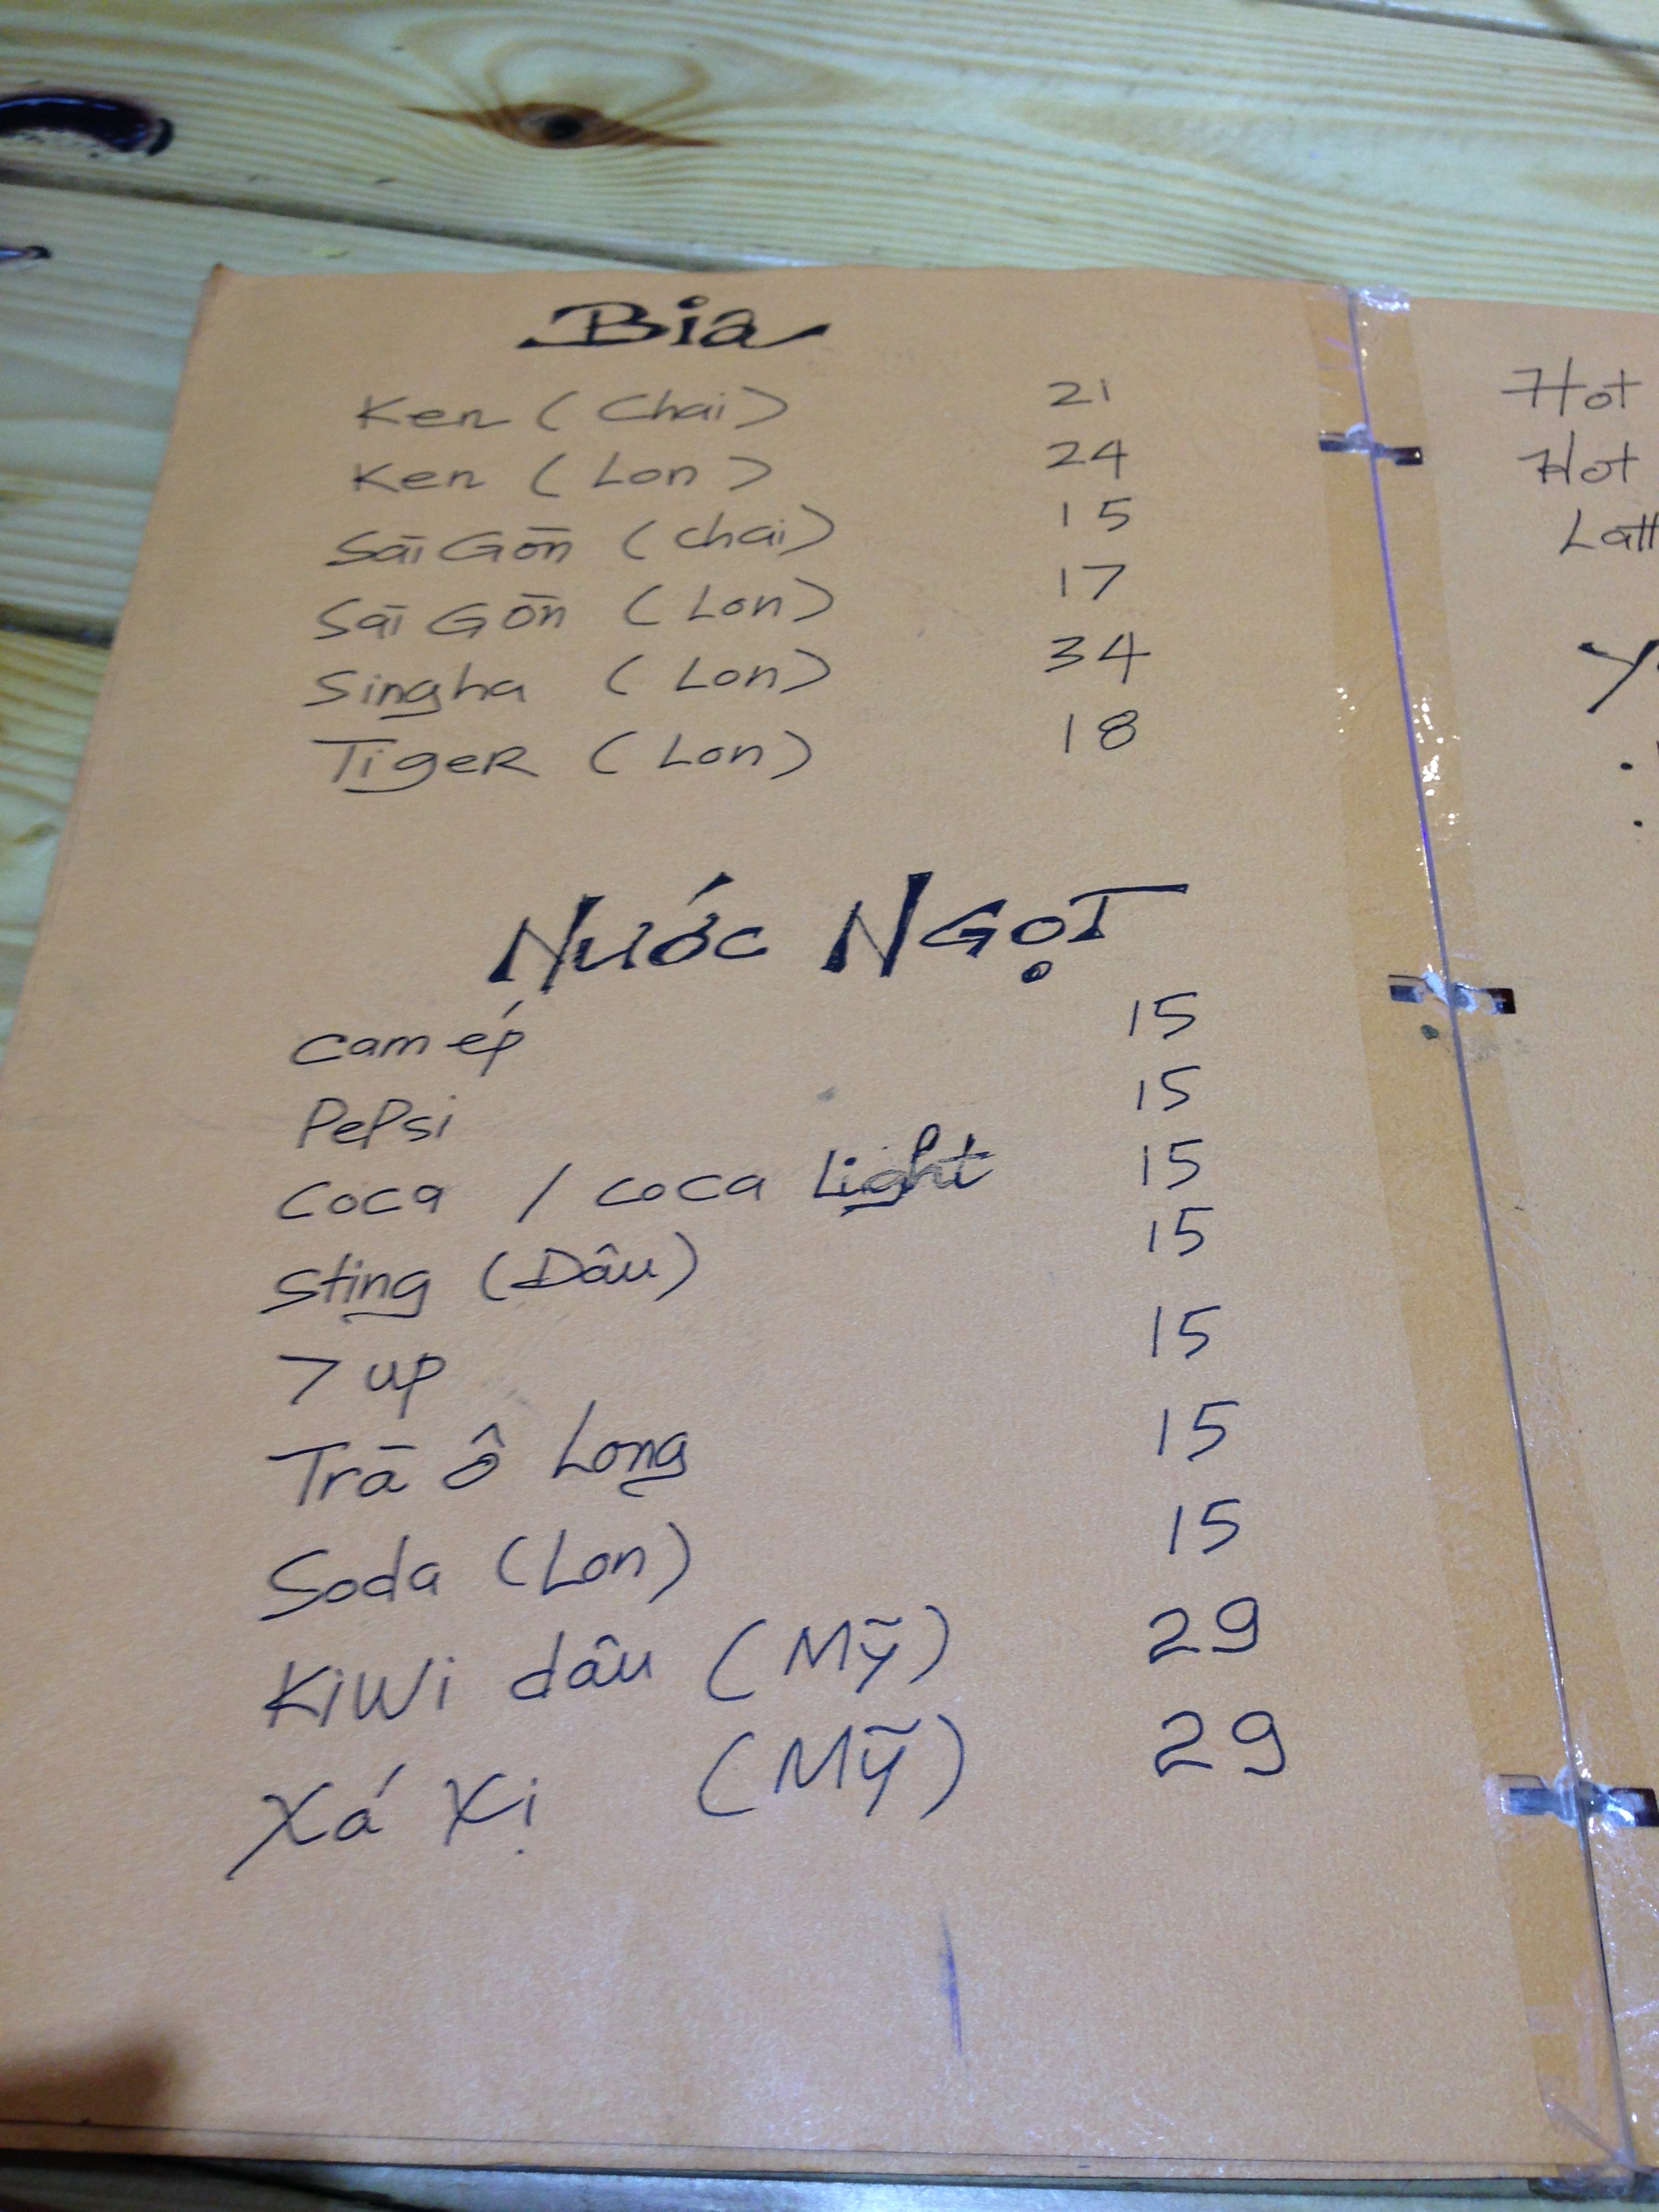 Bia
Ken (Chai) 21
Ken (Lon) 24
Sài Gòn (chai) 15
Sài Gòn (Lon) 17
Singha (Lon) 34
TigeR (Lon) 18
NƯỚC NGỌT
cam ép 15
PePsi 15
coca / coca Light 15
Sting (Dâu) 15
7 up 15
Trà ô Long 15
Soda (Lon) 15
KiWi dâu (Mỹ) 29
Xá Xị (Mỹ) 29
Hot
Hot